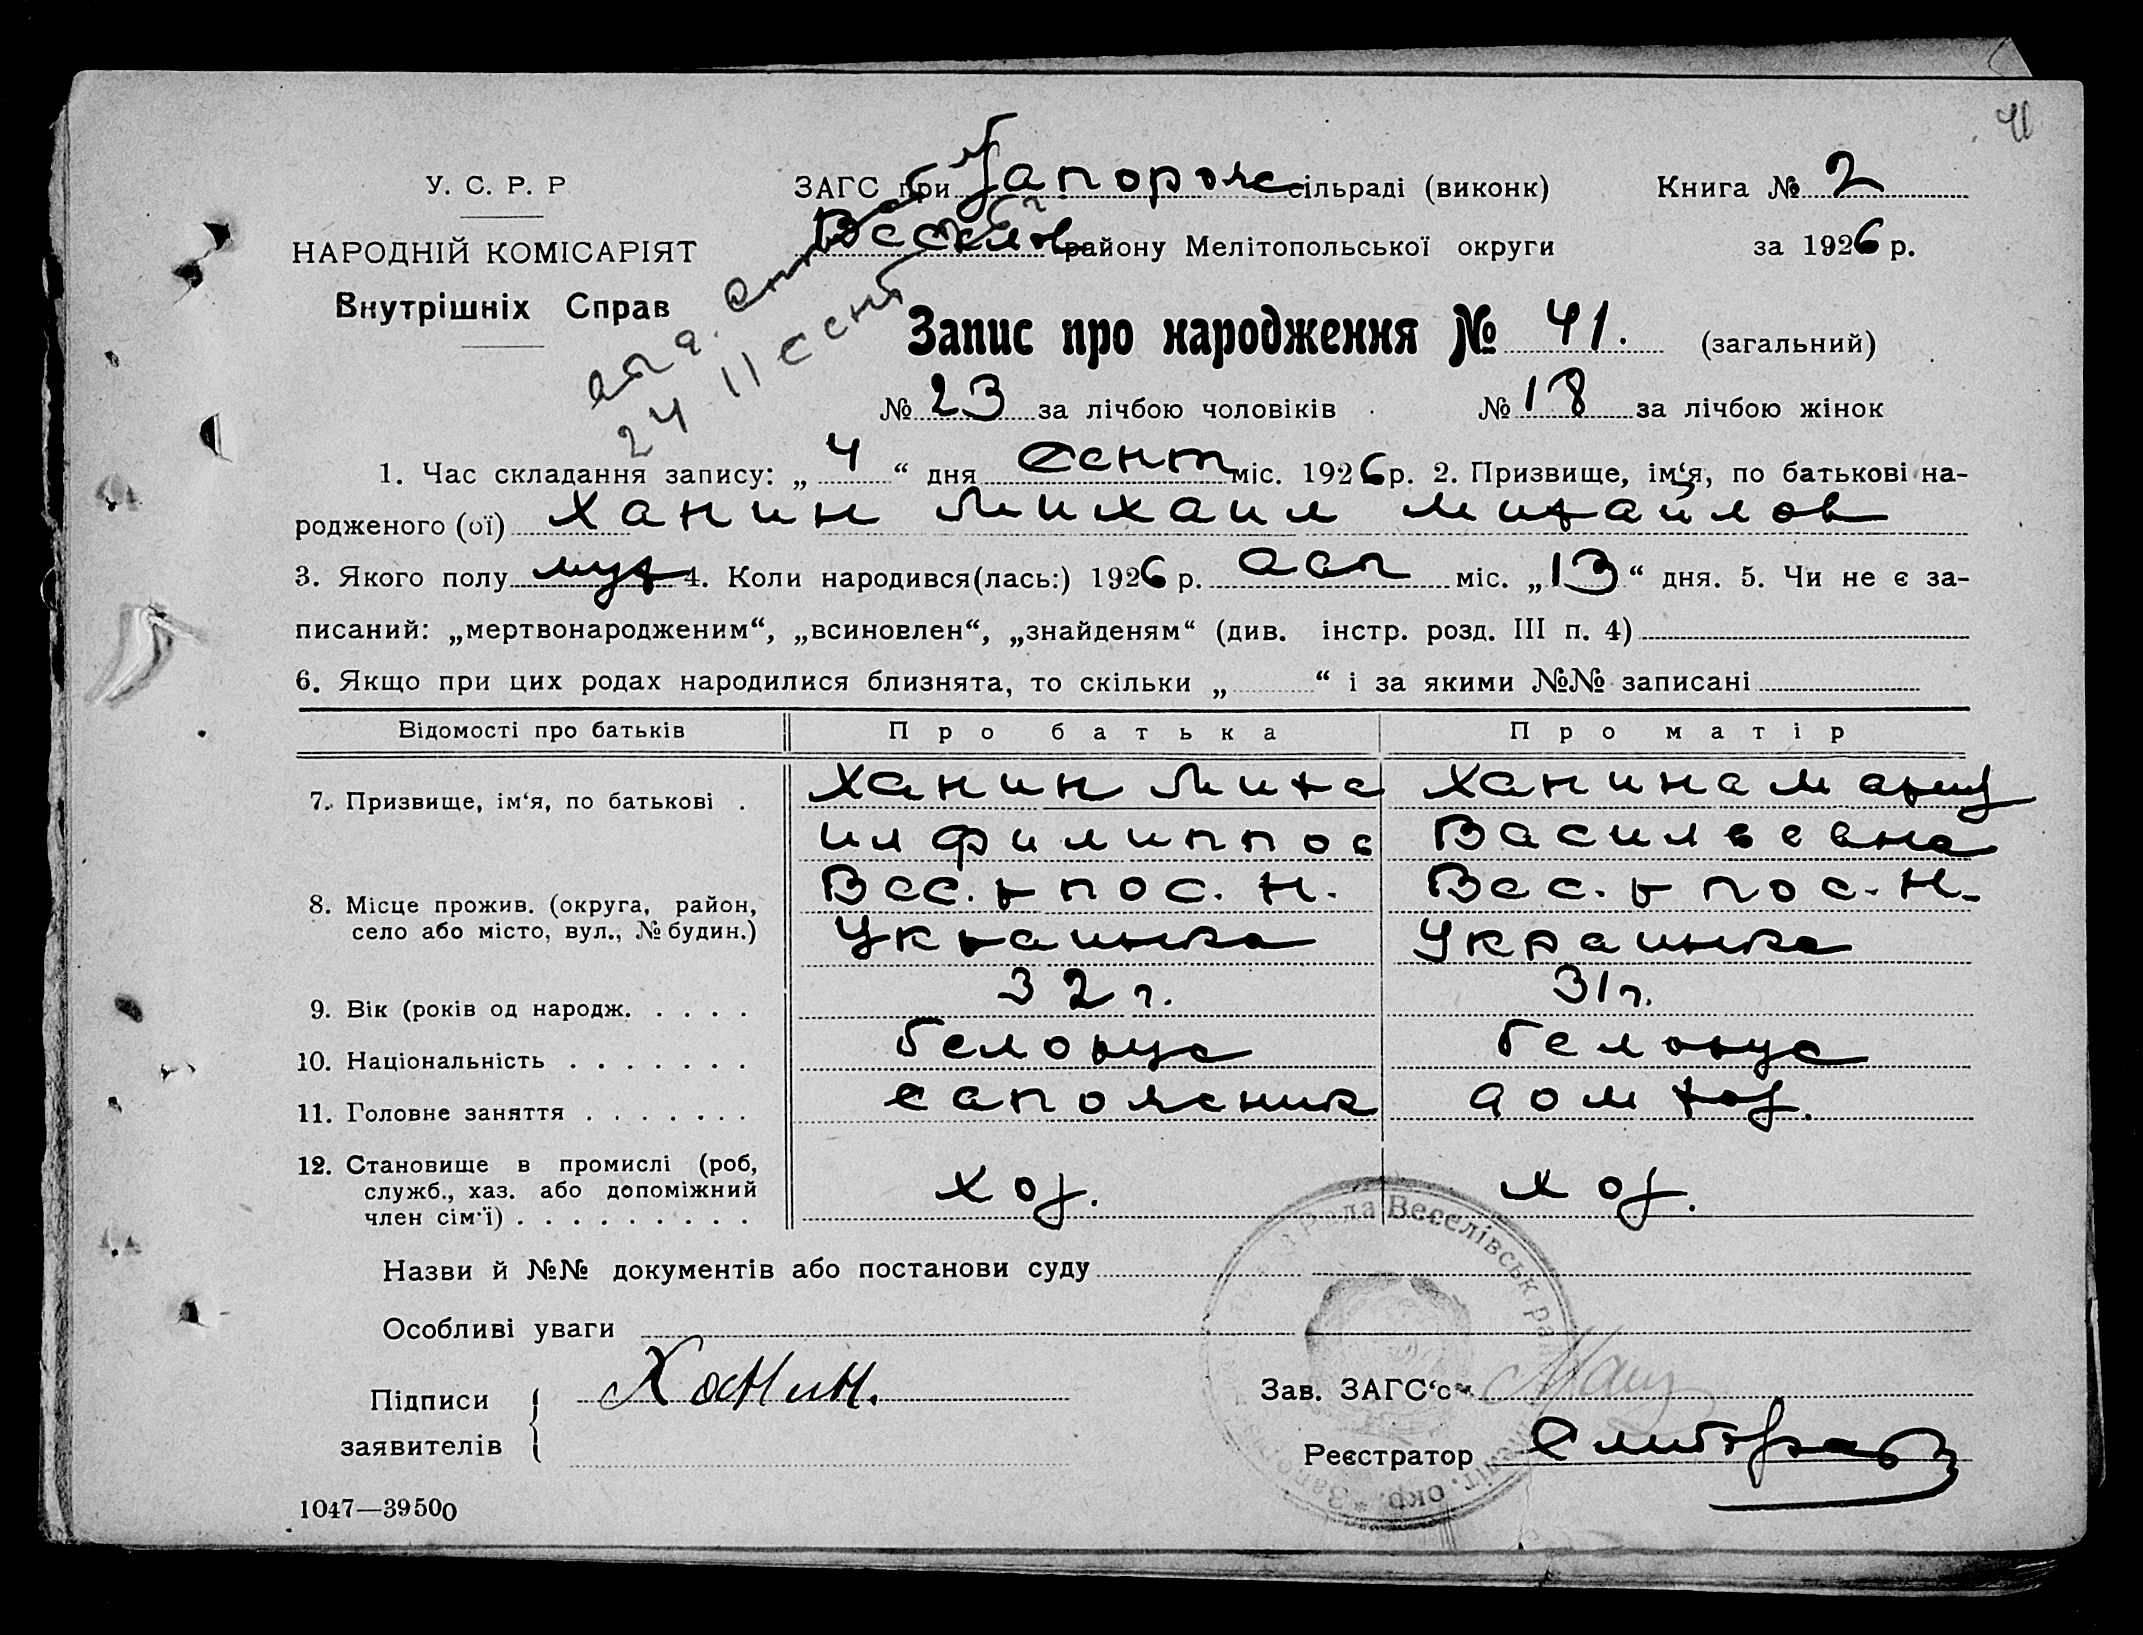 41
У. С. Р. Р
НАРОДНІЙ КОМІСАРІЯТ
Внутрішніх Справ
ЗАГС при Запорож сільраді (виконк)
Веселов району Мелітопольської округи
Книга № 2
за 1926 р.
24 11 сент
Запис про народження № 41. (загальний)
№ 23 за лічбою чоловіків № 18 за лічбою жінок
1. Час складання запису: „ 4 “ дня сент міс. 1926 р. 2. Призвище, ім‘я, по батькові на-
родженого (ої) Ханин Михаил Михайлов
3. Якого полу муж 4. Коли народився(лась:) 1926 р. авг міс. „13“ дня. 5. Чи не є за-
писаний: „мертвонародженим“, „всиновлен“, „знайденям“ (див. інстр. розд. III п. 4)
6. Якщо при цих родах народилися близнята, то скільки „ “ і за якими №№ записані
Відомості про батьків Про батька Про матір
7. Призвище, ім‘я, по батькові . Ханин Миха Ханина Мариу
ил Филиппов Васильевна
8. Місце прожив. (округа, район, Вес. р пос. Н. Вес. р пос. Н.
село або місто, вул., № будин.) Украинка Украинка
9. Вік (років од народж. . . . . 32 г. 31 г.
10. Національність . . . . . . . белорус белорус
11. Головне заняття . . . . . . . сапожник дом хоз.
12. Становище в промислі (роб, хоз. хоз.
служб., хаз. або допоміжний
член сім‘ї) . . . . . . . . .
Назви й №№ документів або постанови суду
Особливі уваги
Підписи заявителів Ханин.
Зав. ЗАГС‘с
Реєстратор
Рада Веселівськ ра
Меліт. окр. * Запоріз
1047—39500